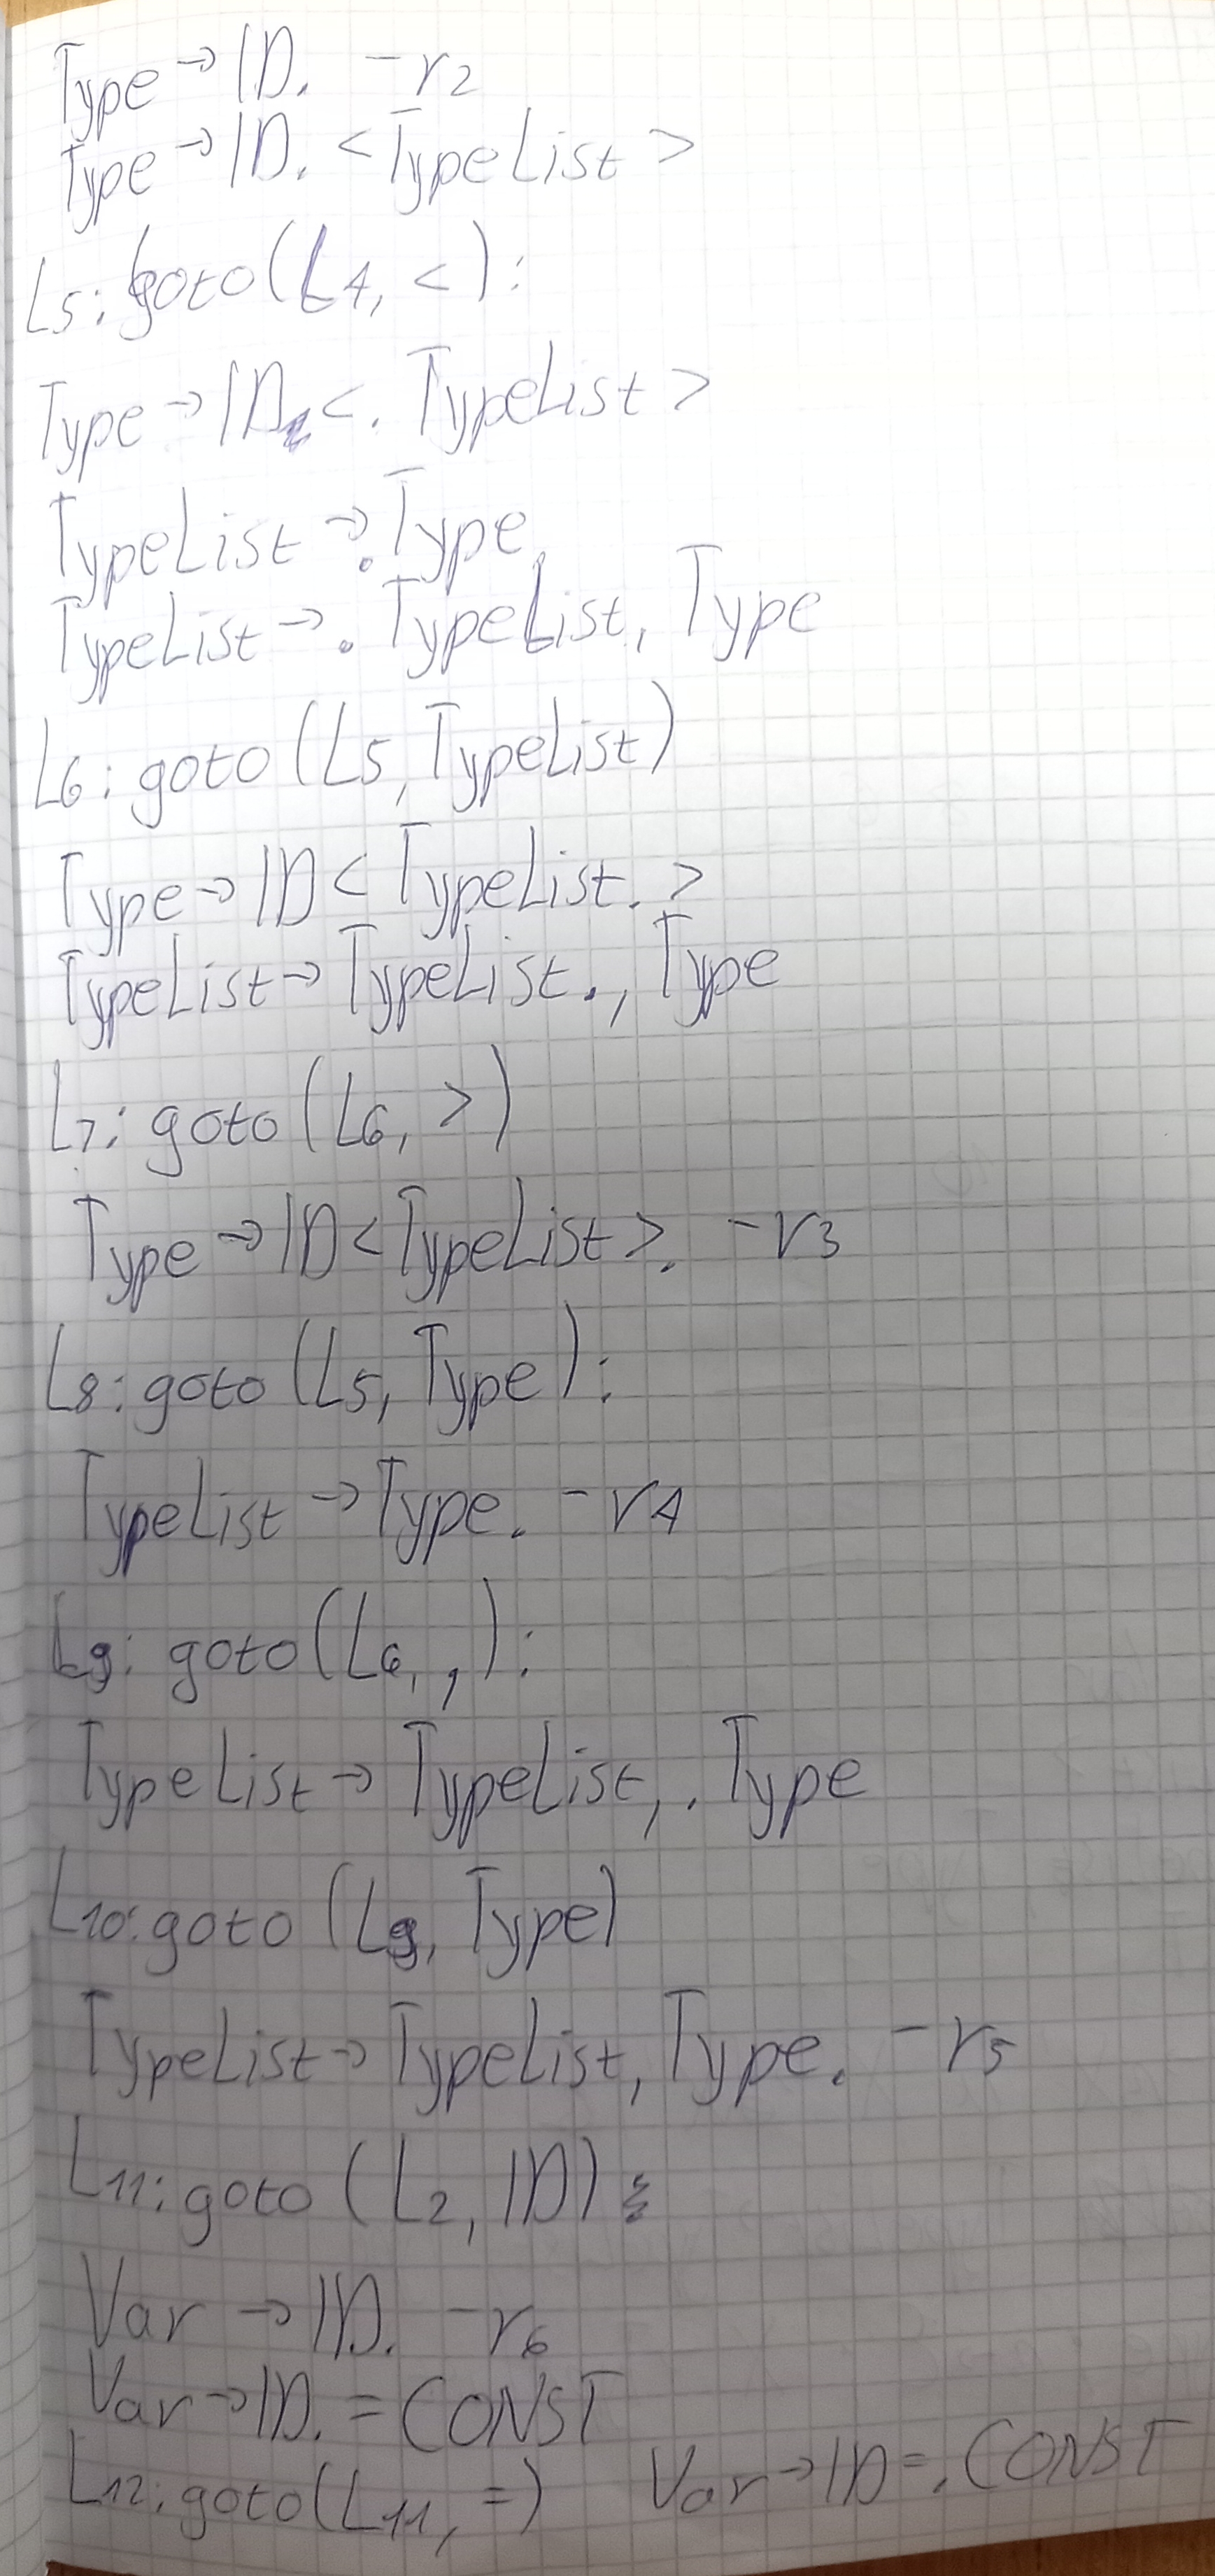 Type → ID. - r2
Type → ID. < TypeList >
L5: goto(L4, <):
Type → ID <. TypeList >
TypeList → .Type
TypeList → . TypeList, Type
L6: goto (L5, TypeList)
Type → ID < TypeList. >
TypeList → TypeList. , Type
L7: goto (L6, >)
Type → ID < TypeList >. - r3
L8: goto (L5, Type):
TypeList → Type. - r4
L9: goto (L6, ,):
TypeList → TypeList, . Type
L10: goto (L9, Type)
TypeList → TypeList, Type. - r5
L11: goto (L2, ID):
Var → ID. - r6
Var → ID. = CONST
L12: goto(L11, =) Var → ID =. CONST